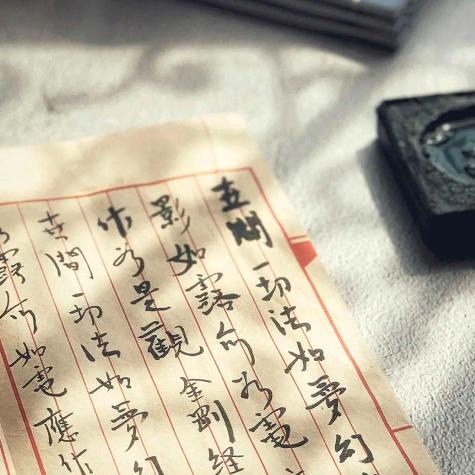 世間一切法如夢幻
影如露亦如電
作如是觀金剛經
世間一切法如夢幻
露亦如電應作